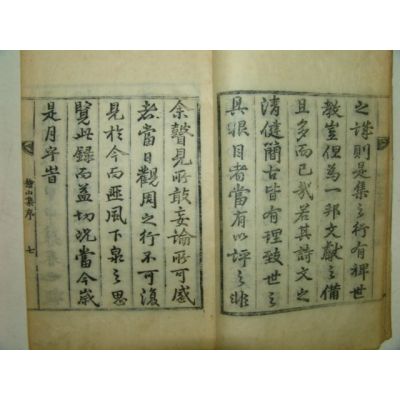 之謀則是集之行有裨世
教豈但為一邦文獻之備
且多而已哉若其詩文之
清健簡古皆有理致世之
具眼目者當有以評之非
余瞽見所敢妄論所可感
者當日觀周之行不可復
見於今而匪風下泉之思
覽此錄而益切況當今歲
是月乎旹
檜山集序 七